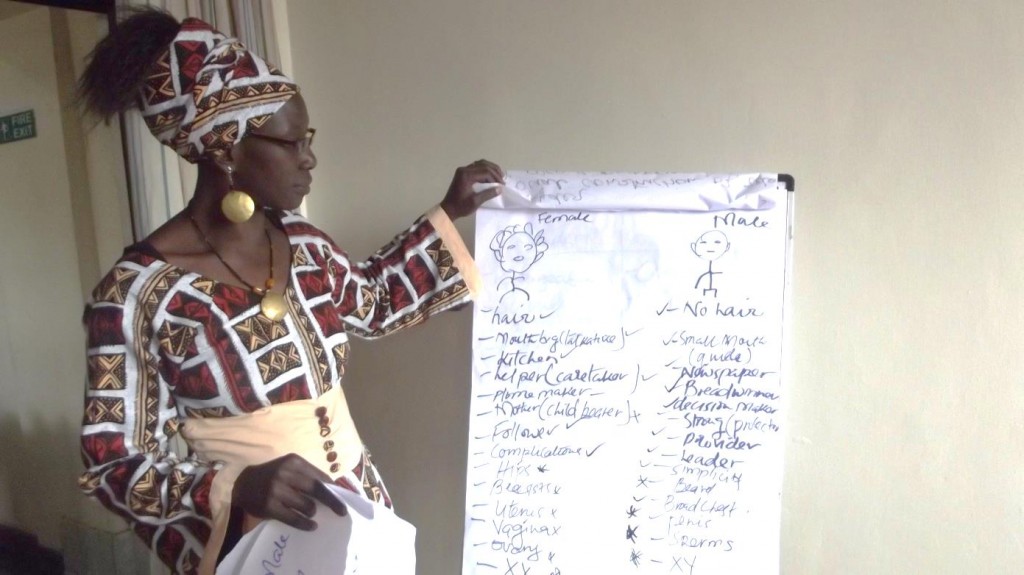 FIRE
EXIT
Female
Male
- hair ✓
- Kitchen ✓
- helper (caretaker) ✓
- Home maker -
- Mother (child bearer) x
- Follower ✓
- Complications ✓
- Hips x
- Breasts x
- Uterus x
- Vagina x
- Ovary x
- XX
✓ - No hair
✓ - Small Mouth
(quiet)
✓ - Newspaper
✓ Breadwinner
✓ decision maker
- Strong (protector
✓ - Provider
✓ - Leader
✓ - Simplicity
x - Beard
✓ - Broad Chest
x - Penis
x - Sperms
x - XY
Male